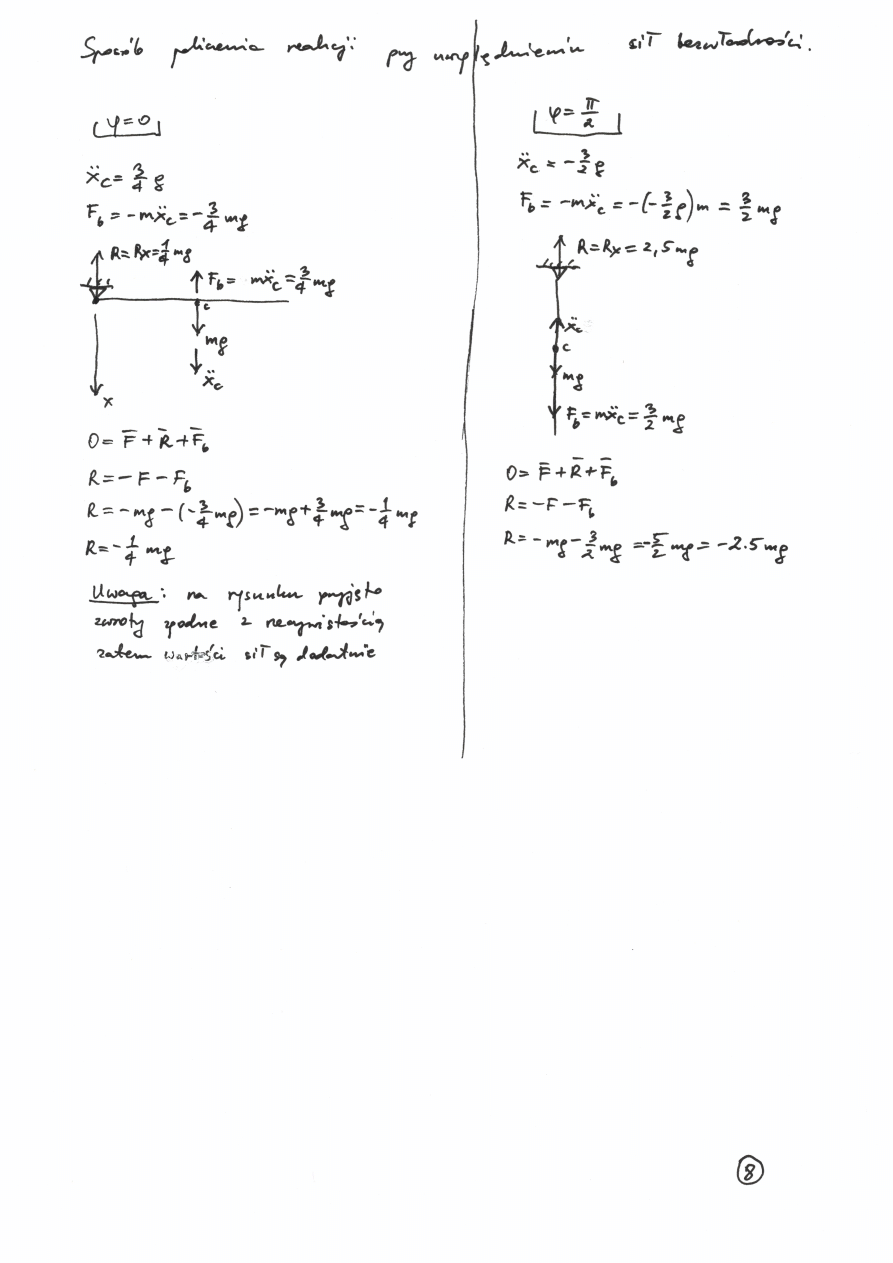 Sposób policzenia reakcji przy uwzględnieniu sił bezwładności.
φ=0
ẍc = 3/4 g
F_b = -mẍc = -3/4 mg
R=Rx=1/4 mg
F_b = mẍc = 3/4 mg
c
mg
ẍc
x
0 = F̄ + R̄ + F̄_b
R = -F - F_b
R = -mg - (-3/4 mg) = -mg + 3/4 mg = -1/4 mg
R = -1/4 mg
Uwaga: na rysunku przyjęto
zwroty zgodne z rzeczywistością
zatem wartości sił są dodatnie
φ = π/2
ẍc = -3/2 g
F_b = -mẍc = -(-3/2 g)m = 3/2 mg
R=Rx = 2,5mg
ẍc
c
mg
F_b = mẍc = 3/2 mg
0 = F̄ + R̄ + F̄_b
R = -F - F_b
R = -mg - 3/2 mg = -5/2 mg = -2.5 mg
8